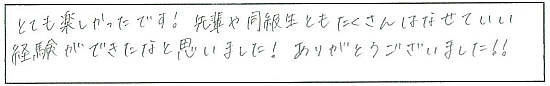 とても楽しかったです! 先輩や同級生ともたくさんはなせていい
経験ができたなと思いました! ありがとうございました!!